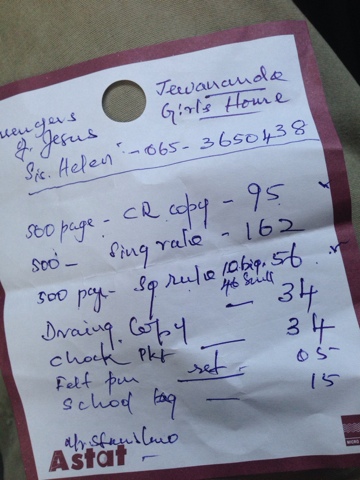 Jewananda
vengers Girls Home
of Jesus
Sis. Helen :- 065-3650438
500 page - CR copy - 95
500 - Sing rule - 162
500 pag - Sq rule 10 big, 56
46 small
Draing Copy — 34
Chock Pkt — 34
Felt pen set - 05
School bag — 15
Astat